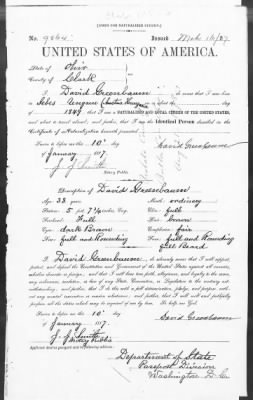 [FORM FOR NATURALIZED CITIZEN.]
No. 9264 Issued Mch 16/87
UNITED STATES OF AMERICA.
State of Ohio
County of Clark
I David Greenbaum do swear that I was born
in Hungary on or about the day
of 1849 that I am a NATURALIZED AND LOYAL CITIZEN OF THE UNITED STATES,
and about to travel abroad; and further, that I am the Identical Person described in the
Certificate of Naturalization herewith presented.
Sworn to before me this 10"
day
of January 1887 David Greenbaum
J. J. Smith
Notary Public.
Description of David Greenbaum
Age: 38 years Mouth: ordinary
Stature: 5 feet 7 ½ inches, Eng. Chin: full
Forehead: Full Hair: brown
Eyes: dark Brown Complexion: fair
Nose: full and Rounding Face: full and Rounding
full Beard
I, David Greenbaum, do solemnly swear that I will support,
protect, and defend the Constitution and Government of the United States against all enemies,
whether domestic or foreign; and that I will bear true faith, allegiance, and loyalty to the same,
any ordinance, resolution, or law of any State, Convention, or Legislature to the contrary not-
withstanding; and further, that I do this with a full determination, pledge, and purpose, with-
out any mental reservation or evasion whatsoever; and further, that I will well and faithfully
perform all the duties which may be required of me by law. So help me God.
Sworn to before me this 10" day
of January 1887. David Greenbaum
J. J. Smith
Notary Public
Applicant desires passport sent to following address:
Department of State
Passport Division
Washington D. Ca